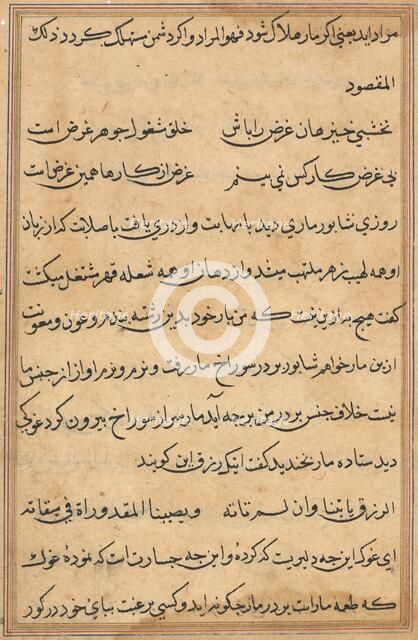 مراد اید یعنی اکر مار هلاک شود فهو المراد و اکر دشمن مستهلک کردد ذلک
المقصود
نخشبی خیز هان غرض را باش خلق مشغول جوهر غرض است
بی غرض کار کس نمی بینم غرض از کارها همین غرض است
روزی شابور ماری دید با مهابت و اژدری یافت با صلابت که از زبان
او همه لهیب زهر ملتهب میشد و از دهان او همه شعله قهر مشتعل میکشت
کفت هیچ به ازین نیست که من بار خود بدین رشته بندم و عون و معونت
ازین مار خواهم شابور بر در سوراخ مار رفت و نرم نرم اواز داد از جنس ما
نیست خلاف جنس بر در من برجه آید مار سر از سوراخ بیرون کرد غوکی
دید ستاده مار بخندید کفت اینک رزق این کویند
الرزق یاتینا وان لم تاته ویصیبنا المقدور اة فی میقاته
ای غوک این چه دلیریست که کرده و این چه جسارت است که نموده غوک
که طعمه مار است بر در مار چکونه اید و کسی برغبت بپای خود در کور